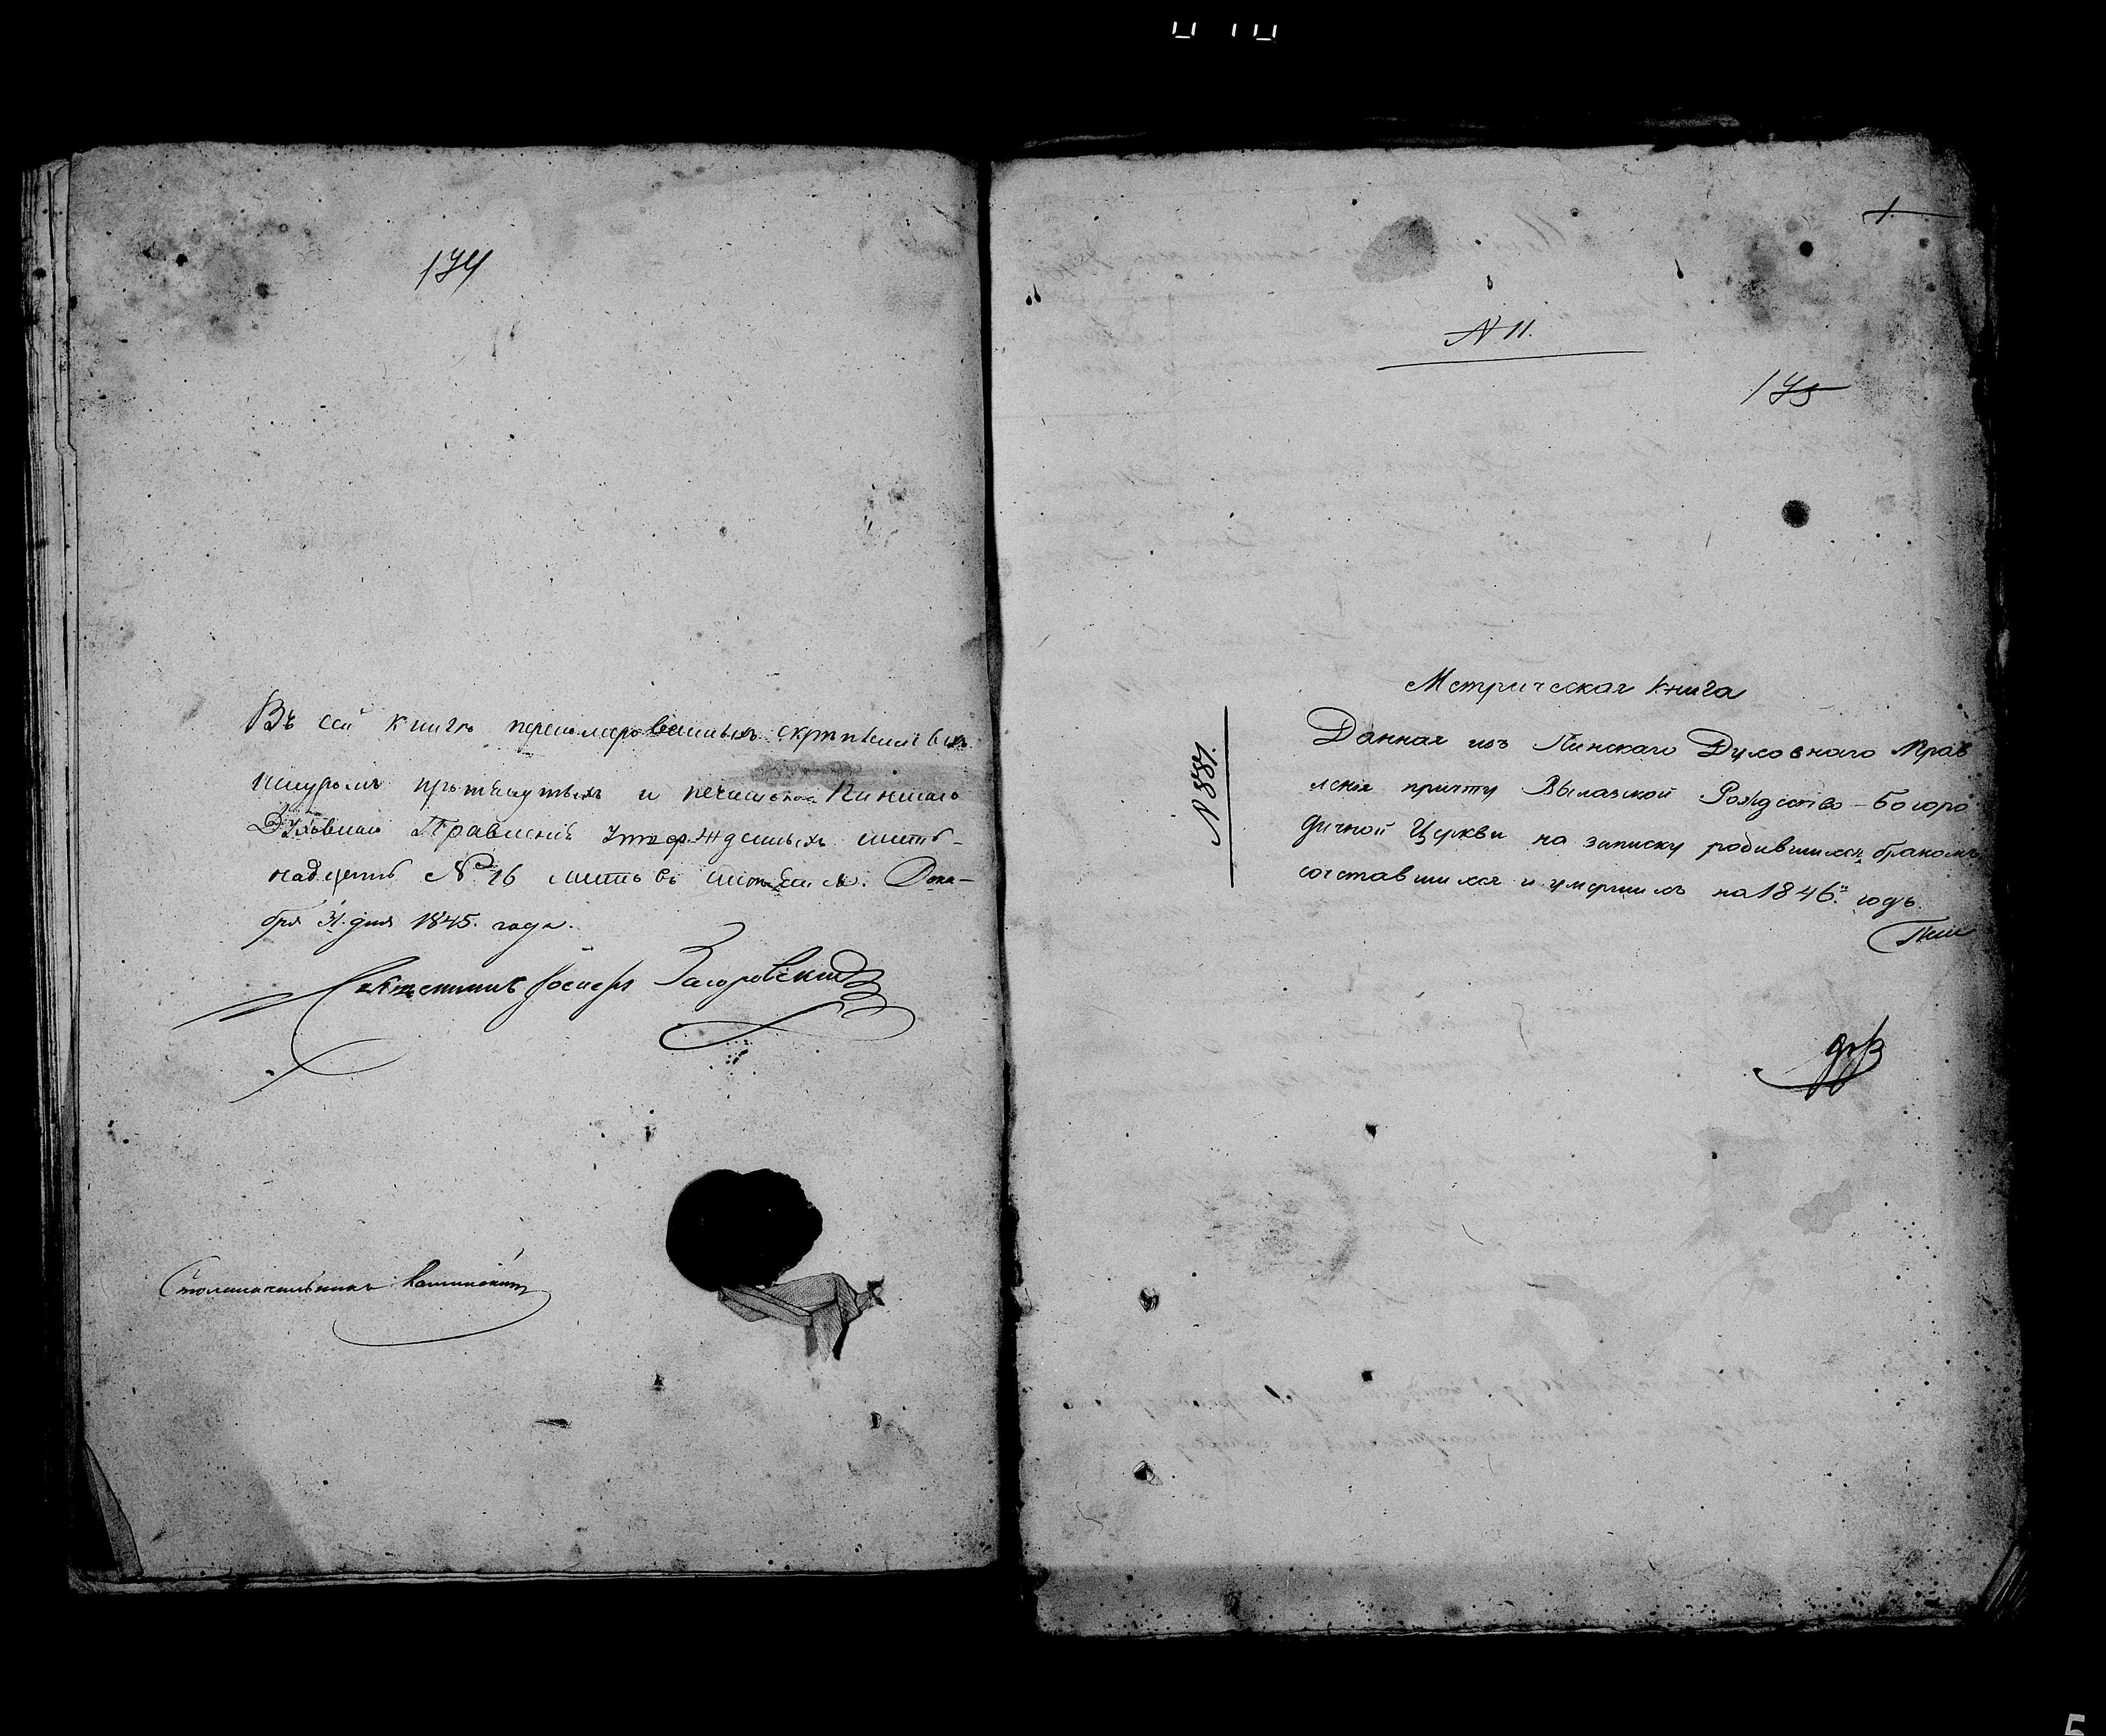 174
Въ сей книгѣ перенумерованныхъ скрѣпленныхъ
шнуромъ протянутыхъ и печатью Пинскаго
Духовнаго Правленія утвержденныхъ шест-
надцать № 16 листовъ Дека-
бря 31. дня 1845. года.
Іосифъ Загоровскій
Столоначальникъ
1.
N 11.
175
N 881.
Метрическая Книга
Данная изъ Пинскаго Духовнаго Прав
ленія причту Вылазской Рождество-Богоро
дичной Церкви на записку родившихся бракомъ
сочетавшихся и умершихъ на 1846й годъ.
5